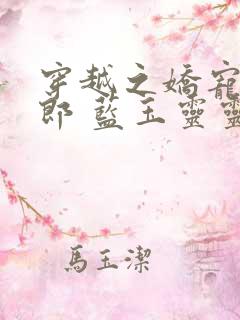 穿越之嬌寵
郎 藍玉靈靈
馬玉潔